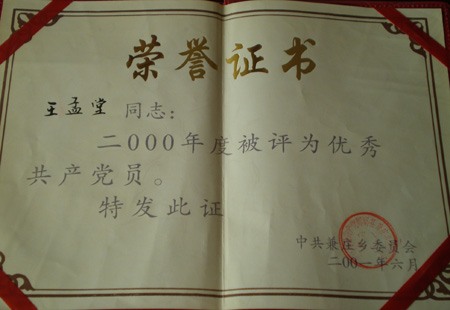 荣誉证书
王孟堂 同志:
二000年度被评为优秀
共产党员。
特发此证
中共兼庄乡委员会
二00一年六月